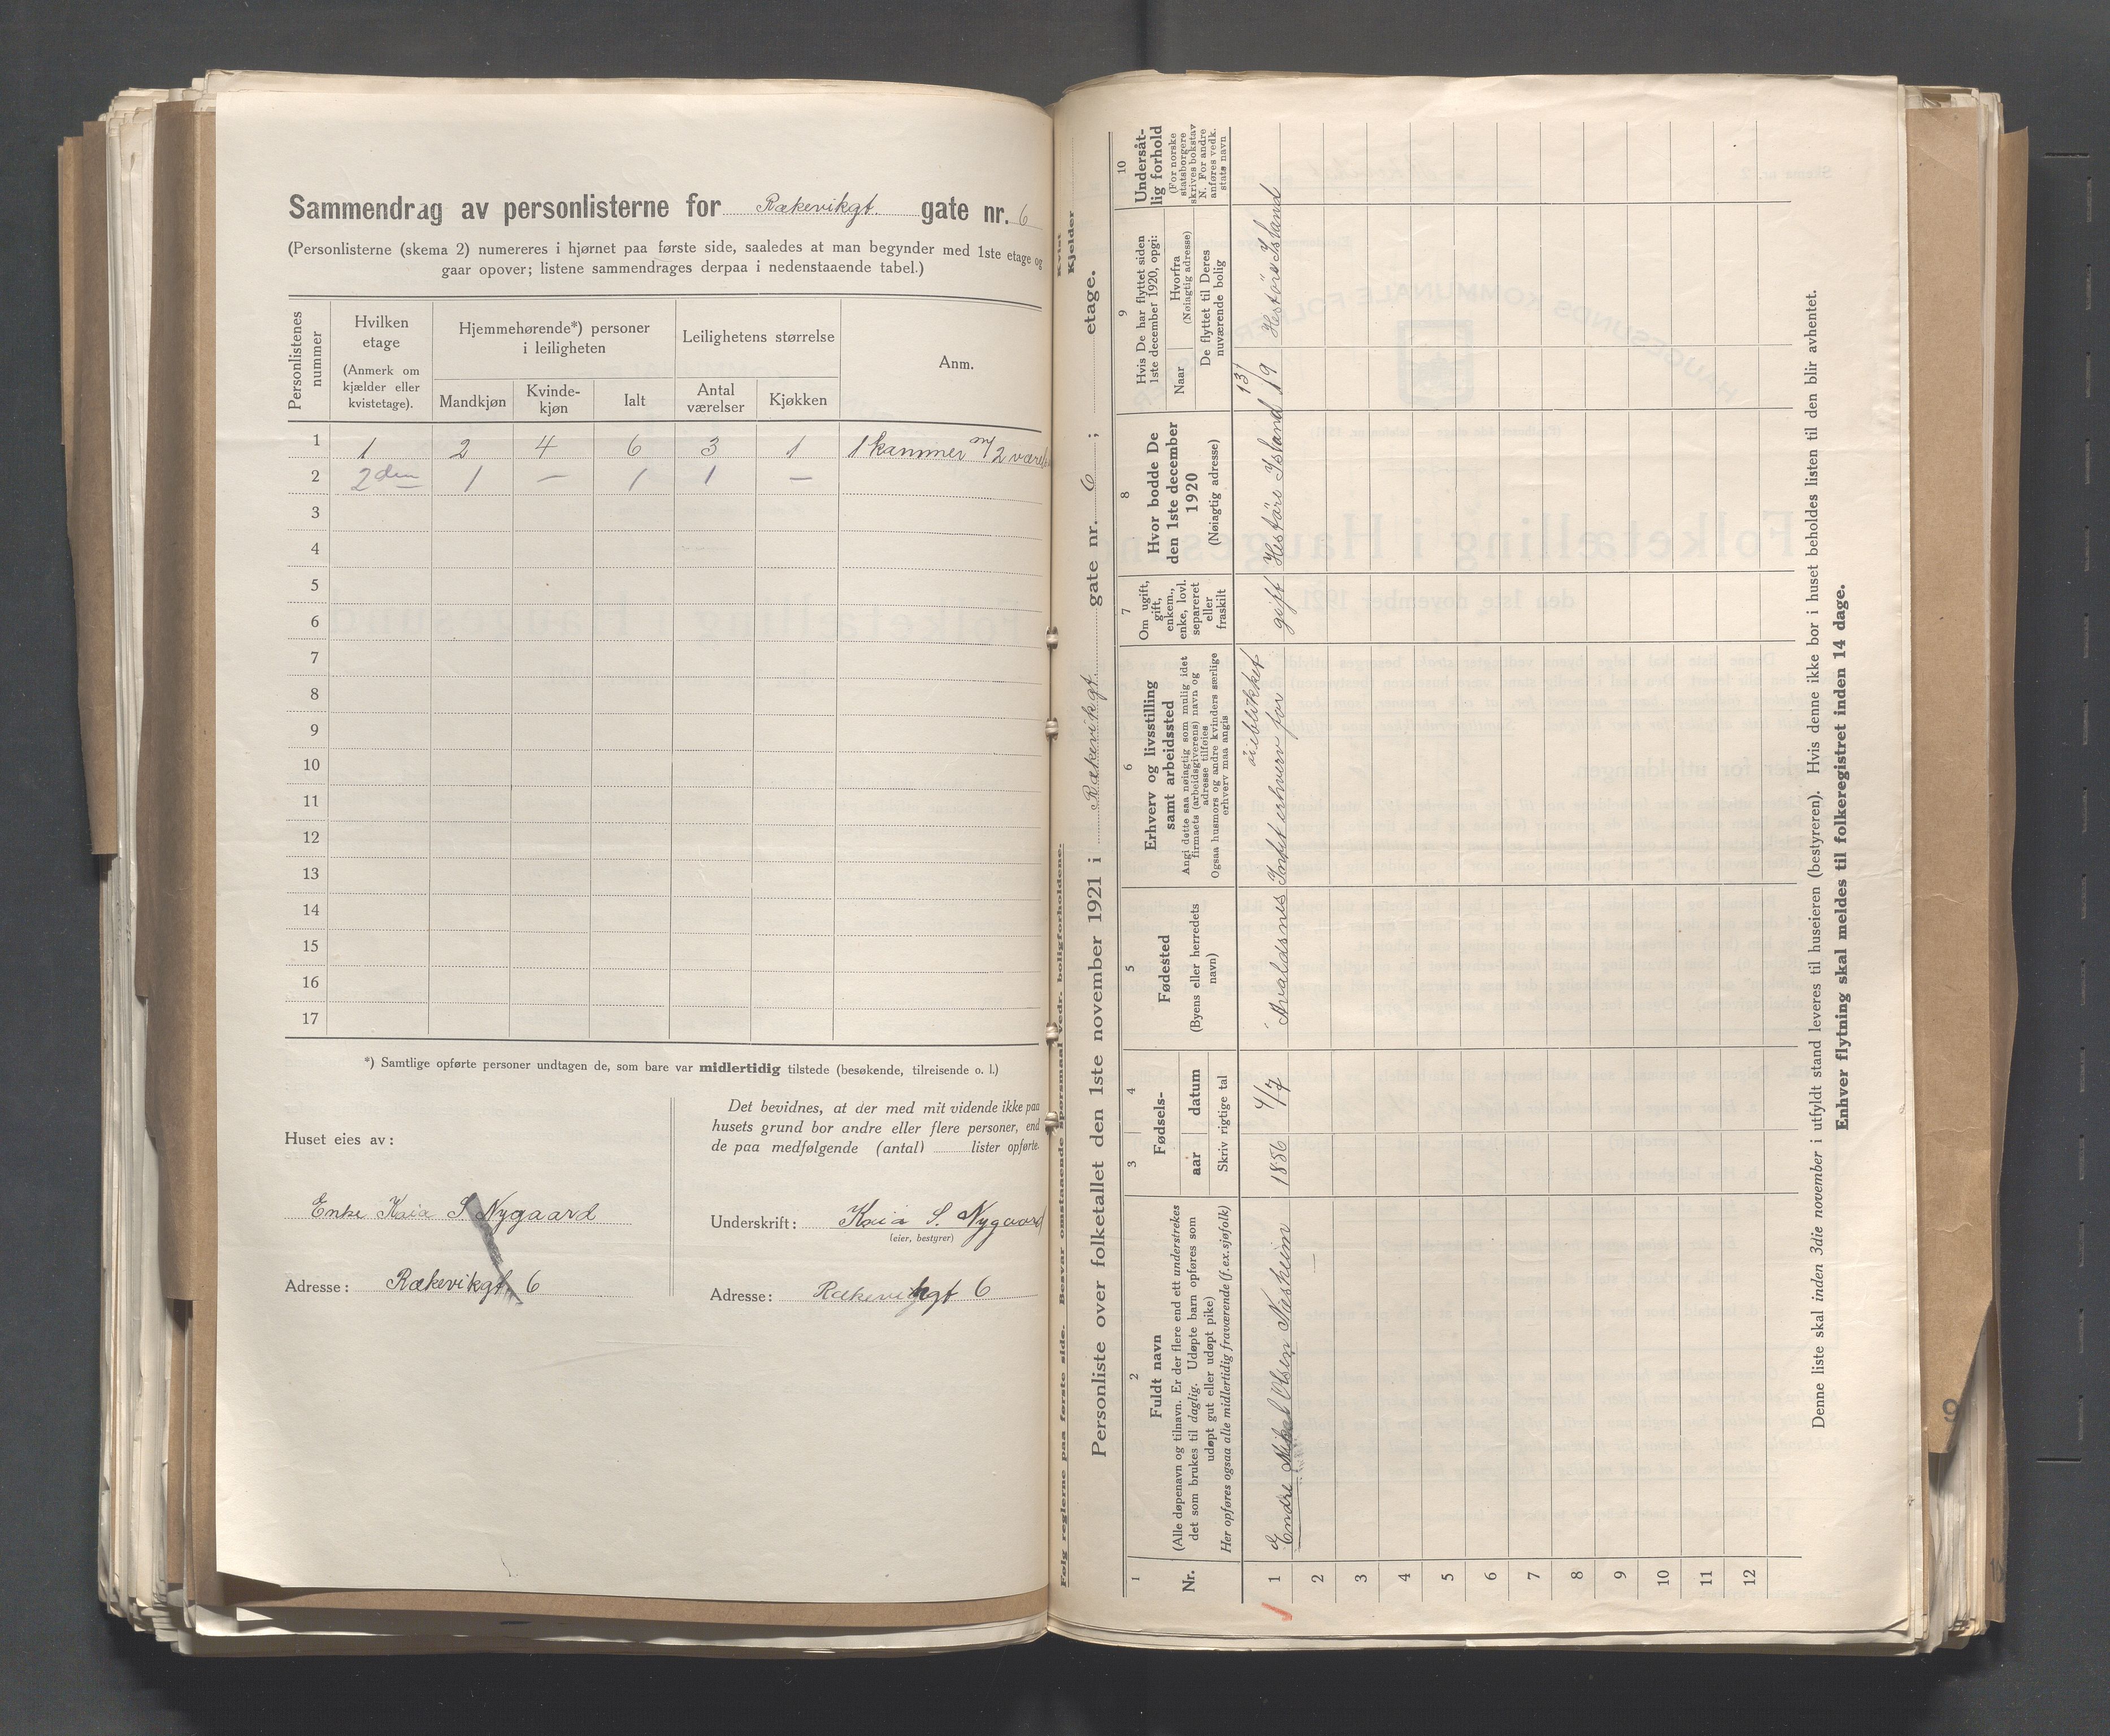 Sammendrag av personlisterne for Rækevikgt. gate nr. 6
(Personlisterne (skema 2) numereres i hjørnet paa første side, saaledes at man begynder med 1ste etage og
gaar opover; listene sammendrages derpaa i nedenstaaende tabel.)
Personlistenes nummer
Hvilken etage
(Anmerk om kjælder eller kvistetage).
Hjemmehørende*) personer i leiligheten
Mandkjøn
Kvinde-kjøn
Ialt
Leilighetens størrelse
Antal værelser
Kjøkken
Anm.
1 1 2 4 6 3 1 1 kammer m/ 2 værelse
2 2den 1 — 1 1 —
3
4
5
6
7
8
9
10
11
12
13
14
15
16
17
*) Samtlige opførte personer undtagen de, som bare var midlertidig tilstede (besøkende, tilreisende o. l.)
Huset eies av:
Enke Kaia S Nygaard
Adresse: Rækevikgt 6
Det bevidnes, at der med mit vidende ikke paa
husets grund bor andre eller flere personer, end
de paa medfølgende (antal) lister opførte.
Underskrift: Kaia S. Nygaard
(eier, bestyrer)
Adresse: Rækevikgt 6
Følg reglerne paa første side. Besvar omstaaende spørsmaal vedr. boligforholdene.
Kvist
Kjelder
Personliste over folketallet den 1ste november 1921 i Rækevikgt. gate nr. 6; etage.
1
Nr.
2
Fuldt navn
(Alle døpenavn og tilnavn. Er der flere end ett understrekes
det som brukes til daglig. Udøpte barn opføres som
udøpt gut eller udøpt pike)
Her opføres ogsaa alle midlertidig fraværende (f.ex.sjøfolk)
3 4
Fødsels-
aar datum
Skriv rigtige tal
5
Fødested
(Byens eller herredets navn)
6
Erhverv og livsstilling
samt arbeidssted
Angi dette saa nøiagtig som mulig idet
firmaets (arbeidsgiverens) navn og
adresse tilføies
Ogsaa husmors og andre kvinders særlige
erhverv maa angis
7
Om ugift,
gift,
enkem.,
enke, lovl.
separeret
eller
fraskilt
8
Hvor bodde De
den 1ste december
1920
(Nøiagtig adresse)
9
Hvis De har flyttet siden
1ste december 1920, opgi:
Naar
Hvorfra
(Nøiagtig adresse)
De flyttet til Deres
nuværende bolig
10
Undersåt-
lig forhold
(For norske
statsborgere
skrives bokstav
N. For andre
anføres vedk.
stats navn
1 Endre Mikal Olsen Næsheim 1886 4/7 Avaldsnes Intet erhverv for øieblikket gift Hestøro Island 13/9 Hestøro Island
2
3
4
5
6
7
8
9
10
11
12
Denne liste skal inden 3die november i utfyldt stand leveres til huseieren (bestyreren). Hvis denne ikke bor i huset beholdes listen til den blir avhentet.
Enhver flytning skal meldes til folkeregistret inden 14 dage.